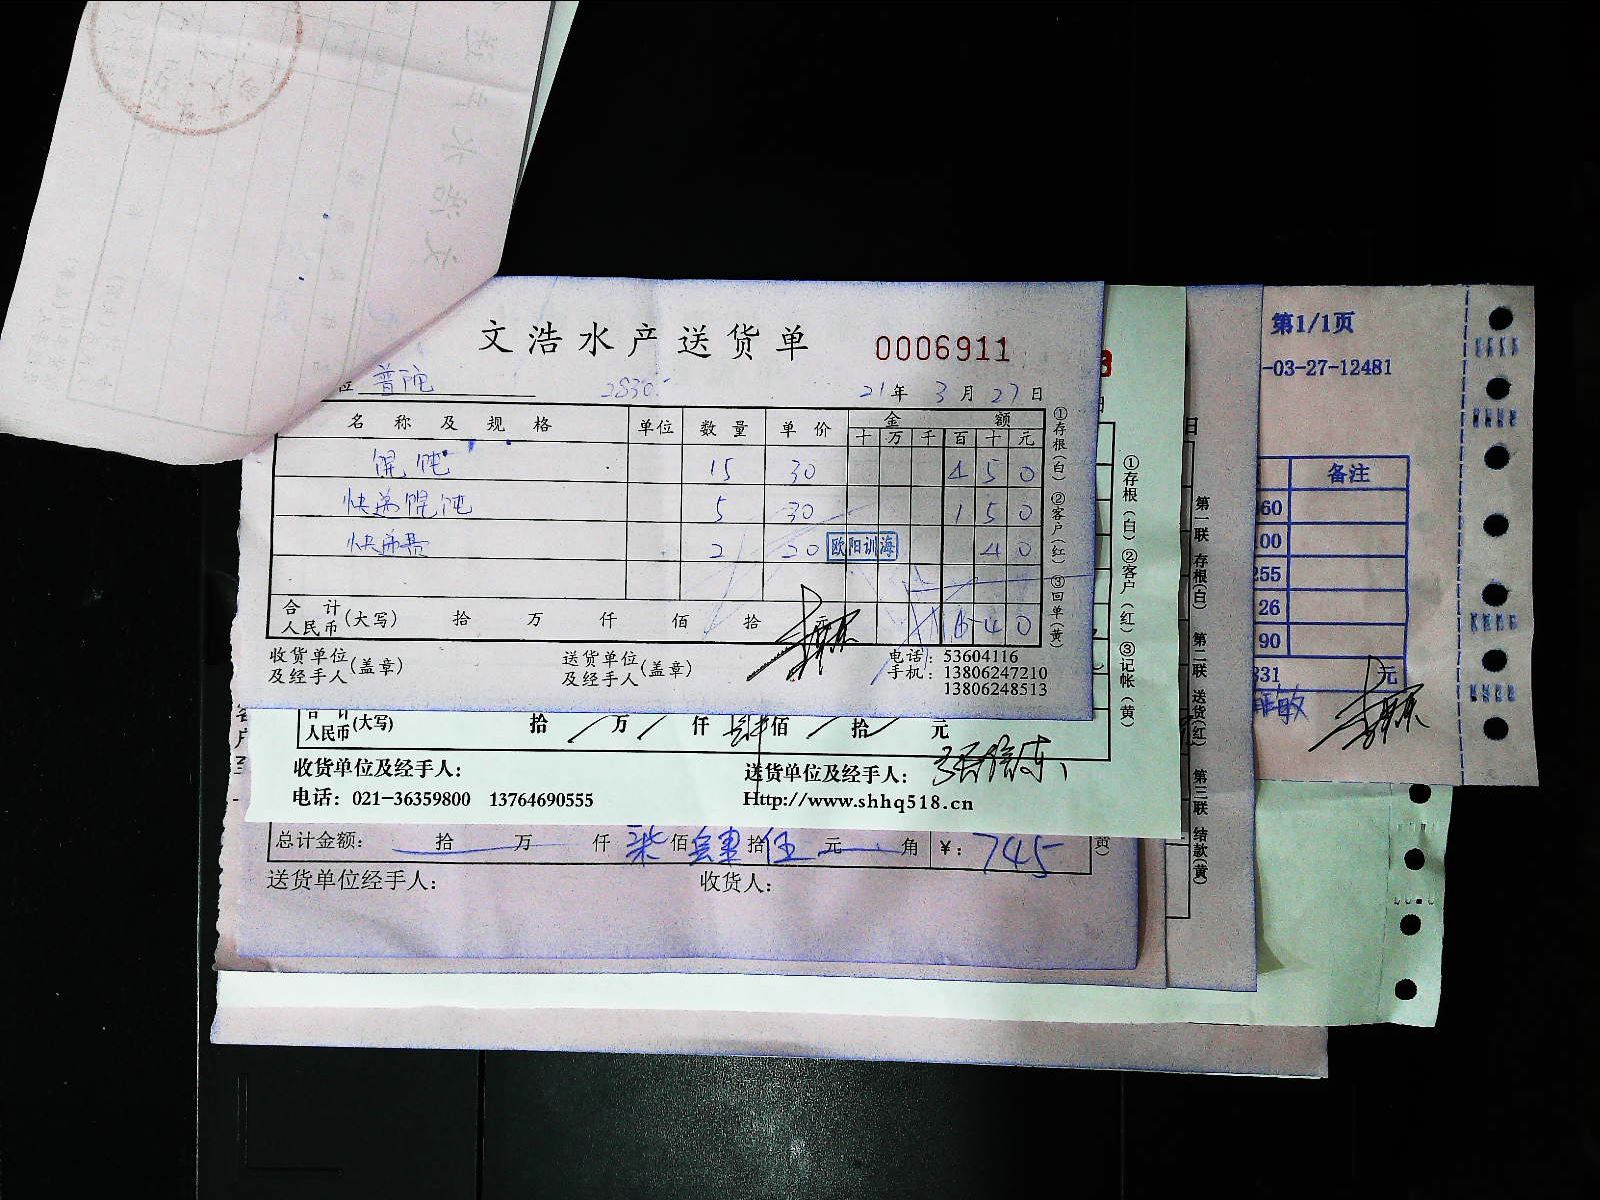 文浩水产送货单 0006911
位 普陀 2830.- 21年3月27日
名称及规格 单位 数量 单价 金额
十 万 千 百 十 元
馄饨 15 30 4 5 0
快递馄饨 5 30 1 5 0
快递费 2 20 4 0
欧阳训海
合计人民币(大写) 拾 万 仟 佰 拾 元 6 4 0
收货单位及经手人(盖章) 送货单位及经手人(盖章) 电话：53604116
手机：13806247210
13806248513
①存根(白) ②客户(红) ③回单(黄)
合计人民币(大写) 拾 万 仟 肆佰 拾 元
收货单位及经手人： 送货单位及经手人：
电话：021-36359800 13764690555 Http://www.shhq518.cn
①存根(白) ②客户(红) ③记帐(黄)
总计金额： 拾 万 仟 柒佰肆拾伍元 角 ¥：745
送货单位经手人： 收货人：
日
第一联 存根(白) 第二联 送货(红) 第三联 结款(黄)
第1/1页
-03-27-12481
备注
60
00
255
26
90
331 元
敏